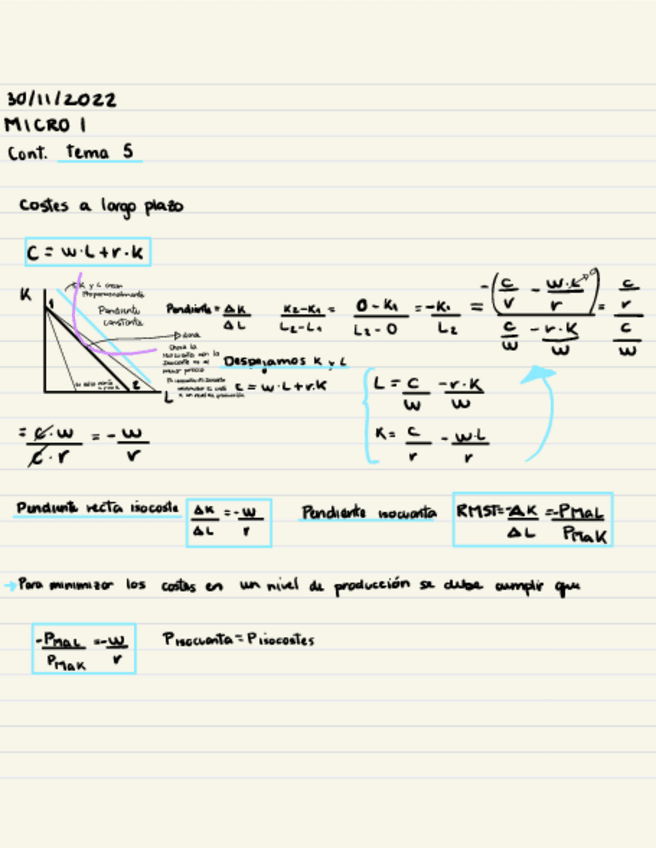 30/11/2022
MICRO 1
Cont. Tema 5
Costes a largo plazo
C = w·L + r·K
K
K y L crecen
Proporcionalmente
Pendiente
constante
1
2
L
donde
Pendiente = ΔK/ΔL   K₂-K₁/L₂-L₁ = 0-K₁/L₂-0 = -K₁/L₂ = -(C/r - w·L/r)⁰/(C/w - r·K/w) = C/r / C/w
Despejamos K y L
C = w·L + r·K
L = C/w - r·K/w
K = C/r - w·L/r
= C·w/C·r = -w/r
Pendiente recta isocoste ΔK/ΔL = -w/r   Pendiente isocuanta RMST = -ΔK/ΔL = -PMaL/PMaK
→ Para minimizar los costes en un nivel de producción se debe cumplir que
-PMaL/PMaK = -w/r   Pisocuanta = Pisocostes